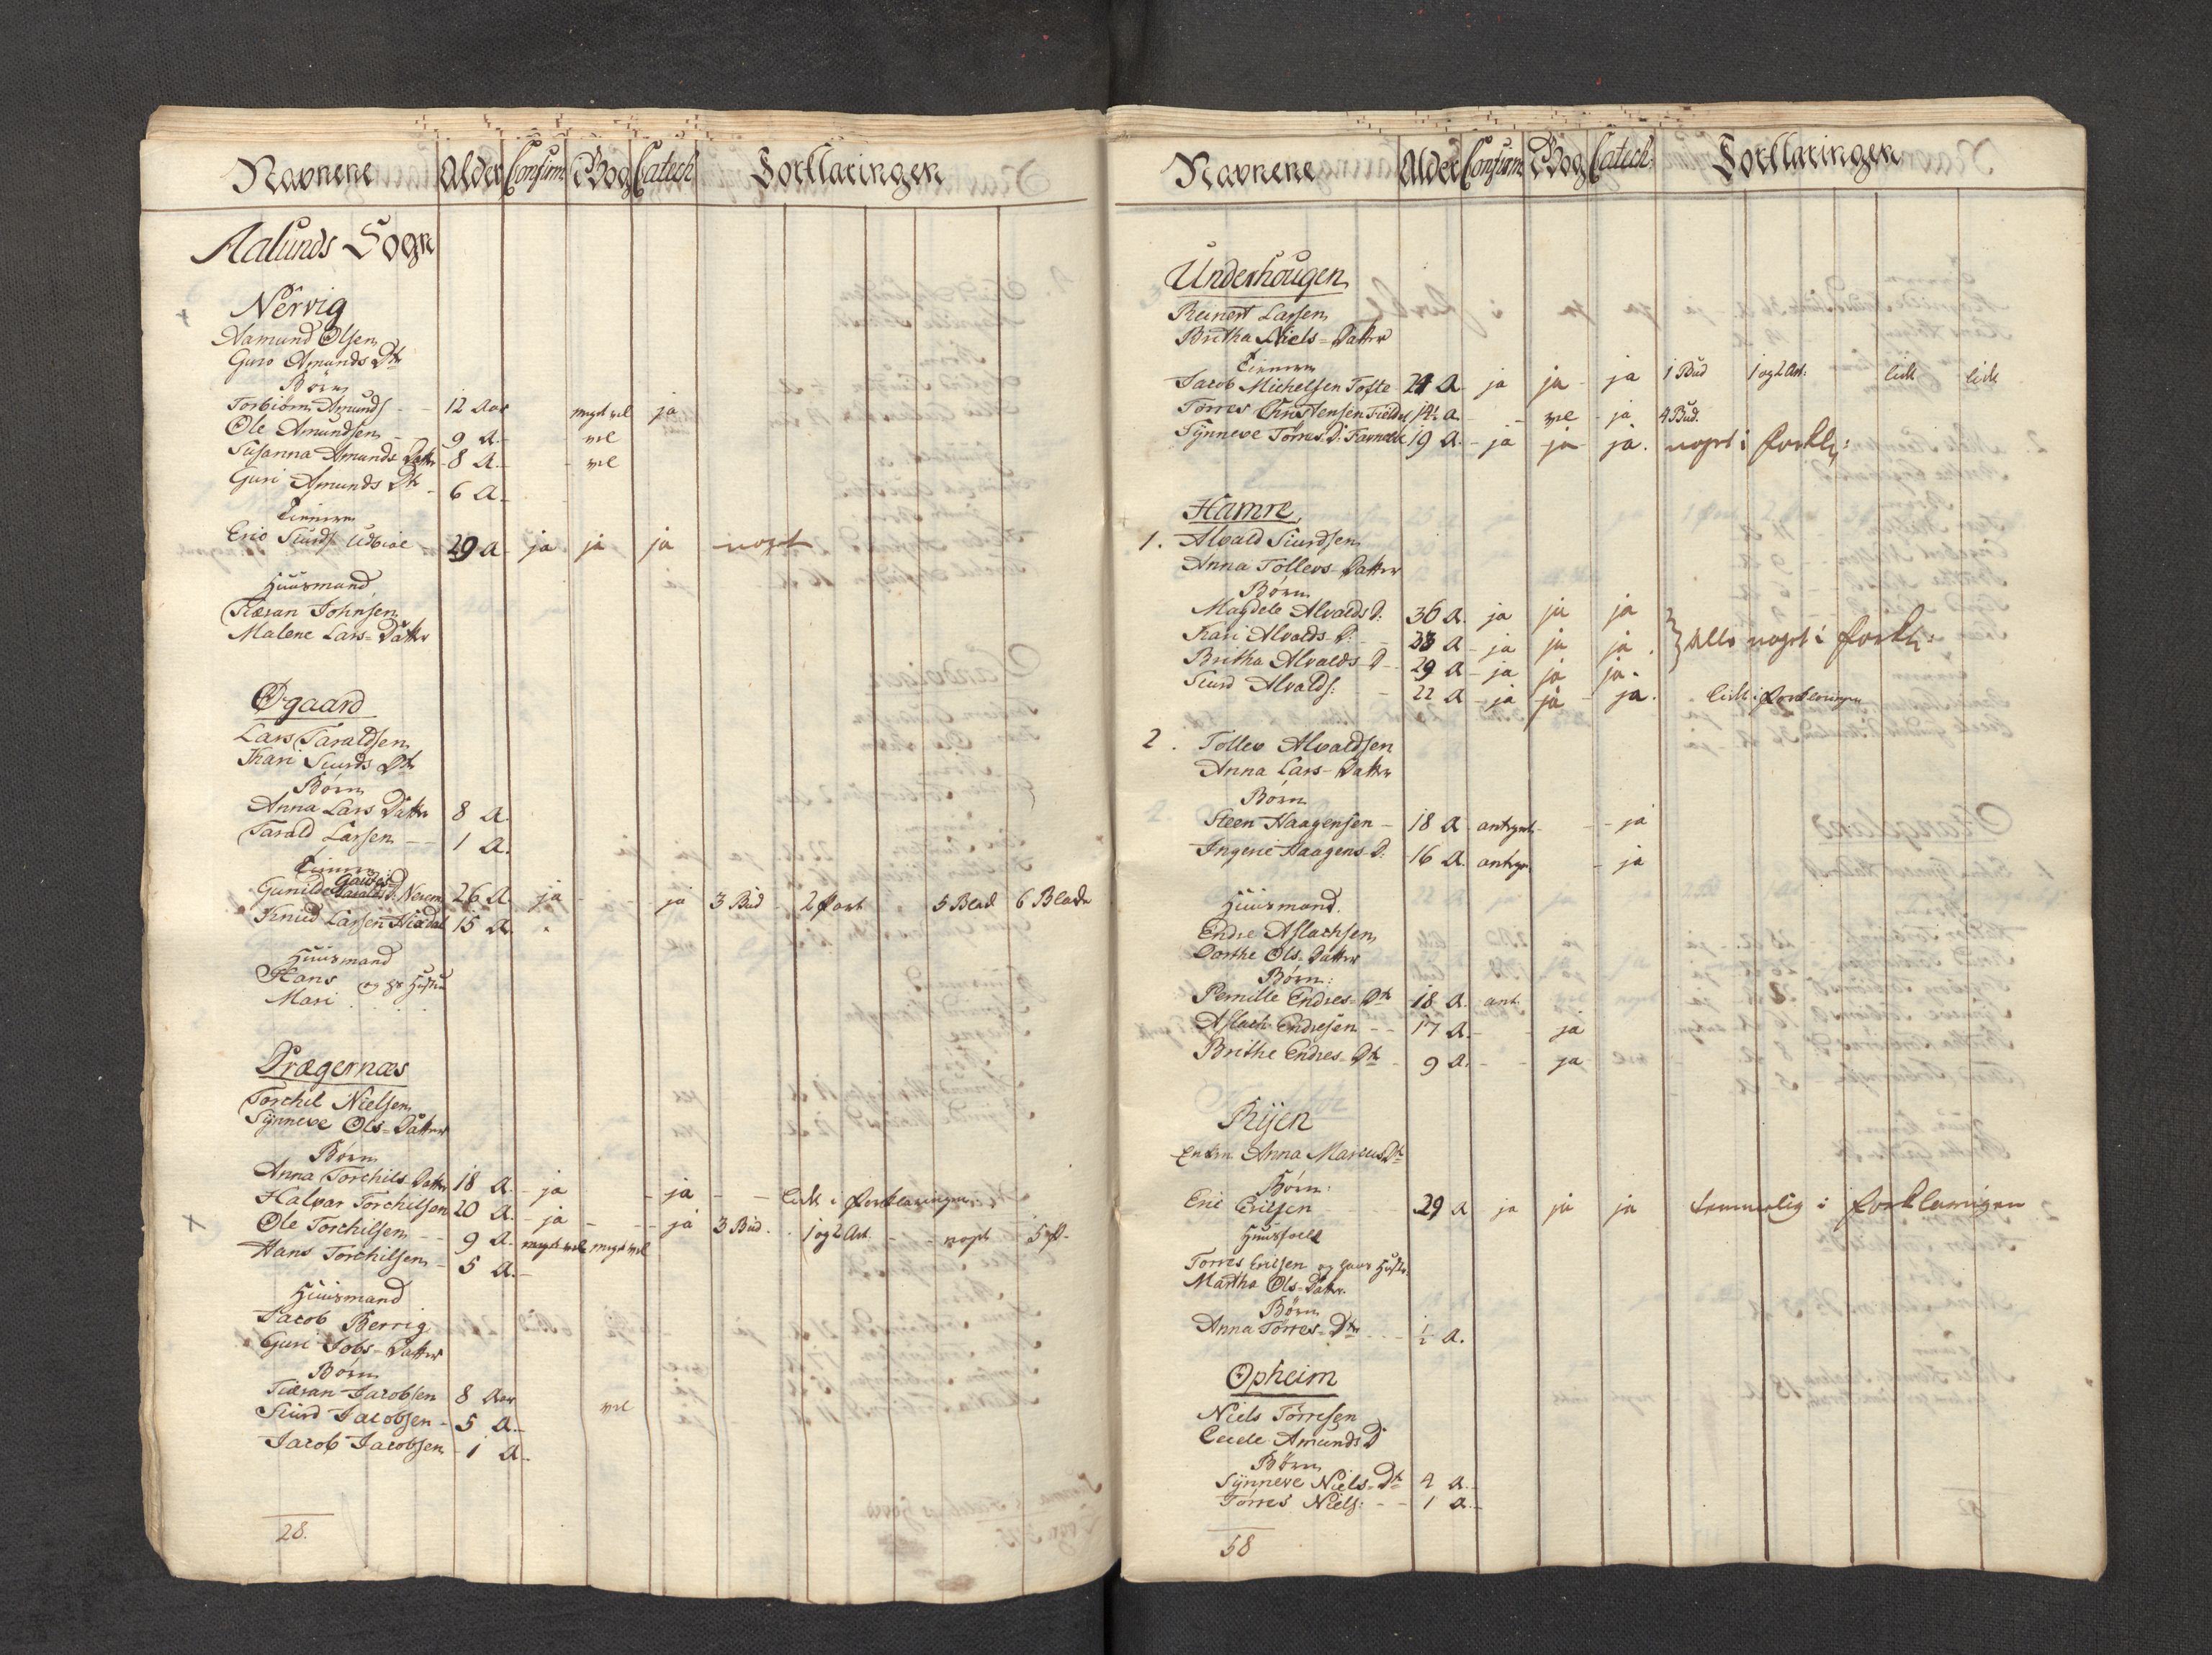 Navnene Alder Confirm Bog Catech Forklaringen
Aalunds Sogn
Nervig
+ Aamund Olsen
Guro Amunds Dtr
Börn
Torbiörn Amunds. - - 12 Aar meget vel ja
Ole Amundsen - 9 A. - vel
Susanna Amunds Datter - 8 A. - vel
Guri Amunds Dtr - 6 A -
Tienere
Eric Siurds. 29 A - ja ja ja noget
Huusmand
Johnsen
Malene Lars-Datter
Øgaard
Lars Taraldsen
Kari Siurds Dtr
Börn
Anna Lars Datter 8 A.
Tarald Larsen - - 1 A.
Tienere
Gunilde D. 26 A ja - - ja 3 Bud 2 Part 5 Blad 6 Blade
Knud Larsen 15 A.
Huusmand
Hans og hs Hustru
Mari
Prægernæs
Torchil Nielsen
Synneve Ols-Datter
Börn
Anna Torchils-Datter 18 A. - ja - ja - - lidt i forklaringen
Halvar Torchilsen 20 A. - ja - - - ja 3 Bud. 1 og 2 Art. - - noget 5
X Ole Torchilsen - - 9 A. meget vel meget vel
Hans Torchilsen - 5 A. -
Huusmand
Jacob Berrig
Guri Jobs-Datter
Börn
Jacobsen 8 Aar vel
Siurd Jacobsen - 5 A. -
Jacob Jacobsen - 1 A -
28.
Navnene Alder Confirm Bog Catech: Forklaringen
Underhougen
Reinert Larsen
Britha Niels-Datter
Tienere
Jacob Michelsen Tofte 24 A - ja ja - ja 1 Bud 1 og 2 Art. lidt lidt
Törres Christensen 14½ A - - vel - ja 4 Bud.
Synneve Törres D. 19 A. - ja - ja - ja. noget i forkl:
Hamre
1. Alvald Siurdsen
Anna Tollevs-Datter
Börn
Magdele Alvalds D: 36 A. ja ja ja
Kari Alvalds-D: - 33 A - ja ja ja . } alle noget i forkl:
Britha Alvalds-D - 29 A - ja ja ja.
Siurd Alvalds: - 22 A - ja ja - ja. lidt i forklaringen
2. Tollev Alvaldsen
Anna Lars-Datter
Börn
Steen Haagensen - 18 A - antegnt. - - ja
Ingerie Haagens D: 16 A. antegn. - ja
Huusmand.
Endre Aslachsen
Dorthe Ols-Datter
Börn:
Pernille Endres-Dtr 18 A. ant.
Aslach Endresen - - 17 A. - - ja
Brithe Endres-Dtr - 9 A. - - ja
Rijen
Enken Anna Marcus Dtr
Börn:
Eric Ericsen - 29 A ja ja ja temmelig i forklaringen
Huusfolk
Torres Ericsen og hans Hustr.
Martha Ols-Datter.
Börn
Anna Törres-Dtr - - - ½ A.
Opheim
Niels Törresen
Amunds D
Börn
Synneve Niels-Dtr 4 A. -
Törres Niels: - - 1 A. -
58